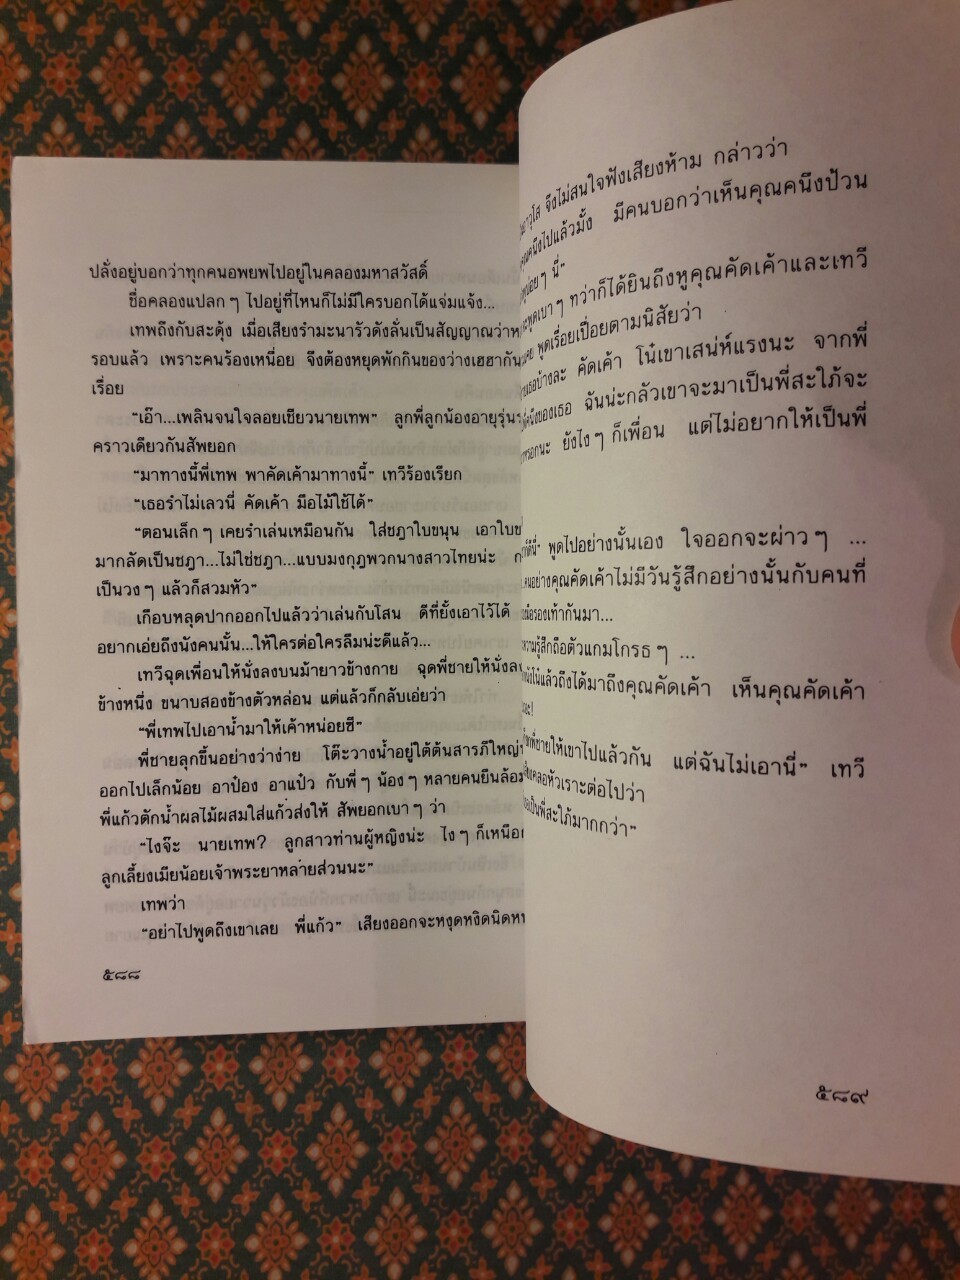 ปลั่งอยู่บอกว่าทุกคนอพยพไปอยู่ในคลองมหาสวัสดิ์
ชื่อคลองแปลกๆ ไปอยู่ที่ไหนก็ไม่มีใครบอกได้แจ่มแจ้ง...
เทพถึงกับสะดุ้ง เมื่อเสียงรำมะนารัวดังลั่นเป็นสัญญาณว่า
รอบแล้ว เพราะคนร้องเหนื่อย จึงต้องหยุดพักกินของว่างเฮฮากัน
เรื่อย
“เอ๊า...เพลินจนใจลอยเชียวนายเทพ” ลูกพี่ลูกน้องอายุรุ่น
คราวเดียวกันสัพยอก
“มาทางนี้พี่เทพ พาคัดเค้ามาทางนี้” เทวีร้องเรียก
“เธอรำไม่เลวนี่ คัดเค้า มือไม้ใช้ได้”
“ตอนเล็กๆ เคยรำเล่นเหมือนกัน ใส่ชฎาใบขนุน เอาใบ
มากลัดเป็นชฎา...ไม่ใช่ชฎา...แบบมงกุฎพวกนางสาวไทยน่ะ
เป็นวงๆ แล้วก็สวมหัว”
เกือบหลุดปากออกไปแล้วว่าเล่นกับโสน ดีที่ยั้งเอาไว้ได้
อยากเอ่ยถึงนังคนนั้น...ให้ใครต่อใครลืมน่ะดีแล้ว...
เทวีฉุดเพื่อนให้นั่งลงบนม้ายาวข้างกาย ฉุดพี่ชายให้นั่งลง
ข้างหนึ่ง ขนาบสองข้างตัวหล่อน แต่แล้วก็กลับเอ่ยว่า
“พี่เทพไปเอาน้ำมาให้เค้าหน่อยซี”
พี่ชายลุกขึ้นอย่างว่าง่าย โต๊ะวางน้ำอยู่ใต้ต้นสารภีใหญ่
ออกไปเล็กน้อย อาป๋อง อาแป๋ว กับพี่ๆ น้องๆ หลายคนยืนล้อม
พี่แก้วตักน้ำผลไม้ผสมใส่แก้วส่งให้ สัพยอกเบาๆ ว่า
“ไงจ๊ะ นายเทพ? ลูกสาวท่านผู้หญิงน่ะ ไงๆ ก็เหนือ
ลูกเลี้ยงเมียน้อยเจ้าพระยาหลายส่วนนะ”
เทพว่า
“อย่าไปพูดถึงเขาเลย พี่แก้ว” เสียงออกจะหงุดหงิดนิด
๕๘๘
จึงไม่สนใจฟังเสียงห้าม กล่าวว่า
ไปแล้วมั้ง มีคนบอกว่าเห็นคุณคนึงป้วน
นี่”
พูดเบาๆ ทว่าก็ได้ยินถึงหูคุณคัดเค้าและเทวี
พูดเรื่อยเปื่อยตามนิสัยว่า
บ้างละ คัดเค้า โน่เขาเสน่ห์แรงนะ จากพี่
ของเธอ ฉันน่ะกลัวเขาจะมาเป็นพี่สะใภ้จะ
หรอกนะ ยังไงๆ ก็เพื่อน แต่ไม่อยากให้เป็นพี่
พูดไปอย่างนั้นเอง ใจออกจะผ่าวๆ ...
คนอย่างคุณคัดเค้าไม่มีวันรู้สึกอย่างนั้นกับคนที่
รองเท้ากันมา...
ความรู้สึกถือตัวแกมโกรธๆ ...
โน่แล้วถึงได้มาถึงคุณคัดเค้า เห็นคุณคัดเค้า
พี่ชายให้เขาไปแล้วกัน แต่ฉันไม่เอานี่” เทวี
คลอหัวเราะต่อไปว่า
เป็นพี่สะใภ้มากกว่า”
๕๘๙